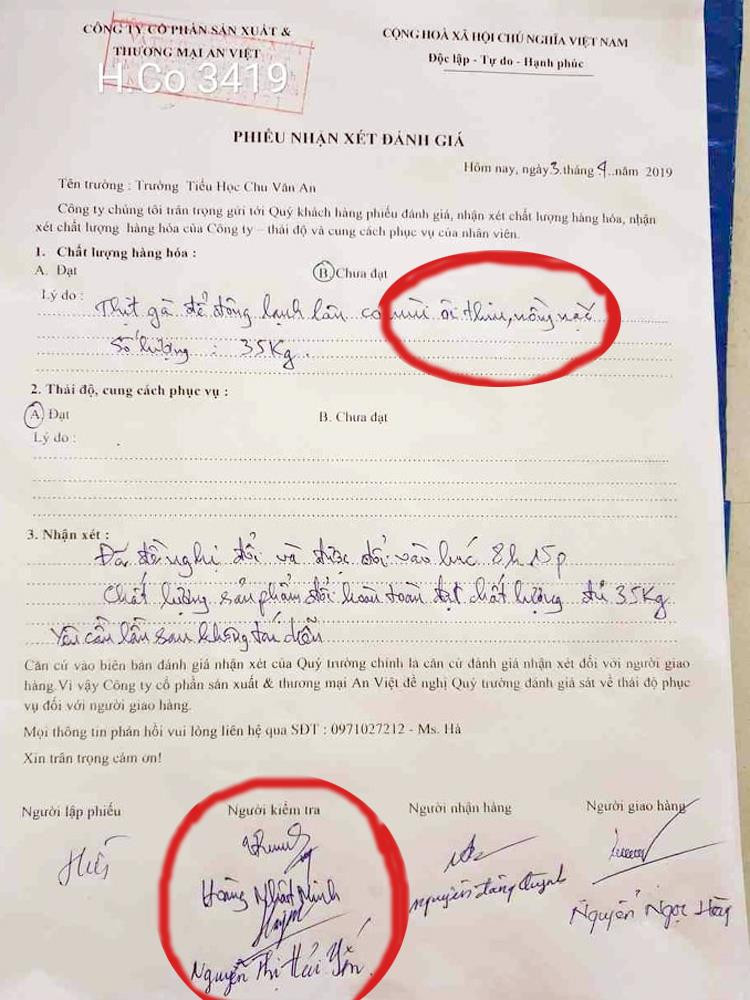 CÔNG TY CỔ PHẦN SẢN XUẤT &
THƯƠNG MẠI AN VIỆT
CỘNG HOÀ XÃ HỘI CHỦ NGHĨA VIỆT NAM
Độc lập - Tự do - Hạnh phúc
H.Co 3419
PHIẾU NHẬN XÉT ĐÁNH GIÁ
Hôm nay, ngày 3 tháng 4 năm 2019
Tên trường : Trường Tiểu Học Chu Văn An
Công ty chúng tôi trân trọng gửi tới Quý khách hàng phiếu đánh giá, nhận xét chất lượng hàng hóa, nhận
xét chất lượng hàng hóa của Công ty – thái độ và cung cách phục vụ của nhân viên.
1. Chất lượng hàng hóa :
A. Đạt
B Chưa đạt
Lý do : Thịt gà để đông lạnh lâu có mùi ôi thiu, nồng nặc
Số lượng : 35Kg.
2. Thái độ, cung cách phục vụ :
A Đạt
B. Chưa đạt
Lý do :
3. Nhận xét :
Đã đề nghị đổi và được đổi vào lúc 8h15p
Chất lượng sản phẩm đổi hoàn toàn đạt chất lượng đủ 35Kg
Yêu cầu lần sau không tái diễn
Căn cứ vào biên bản đánh giá nhận xét của Quý trường chính là căn cứ đánh giá nhận xét đối với người giao
hàng.Vì vậy Công ty cổ phần sản xuất & thương mại An Việt đề nghị Quý trường đánh giá sát về thái độ phục
vụ đối với người giao hàng.
Mọi thông tin phản hồi vui lòng liên hệ qua SĐT : 0971027212 - Ms. Hà
Xin trân trọng cảm ơn!
Người lập phiếu
Người kiểm tra
Người nhận hàng
Người giao hàng
Hoàng Nhật Minh
Nguyễn Đăng Quỳnh
Nguyễn Ngọc
Nguyễn Thị Hải Yến